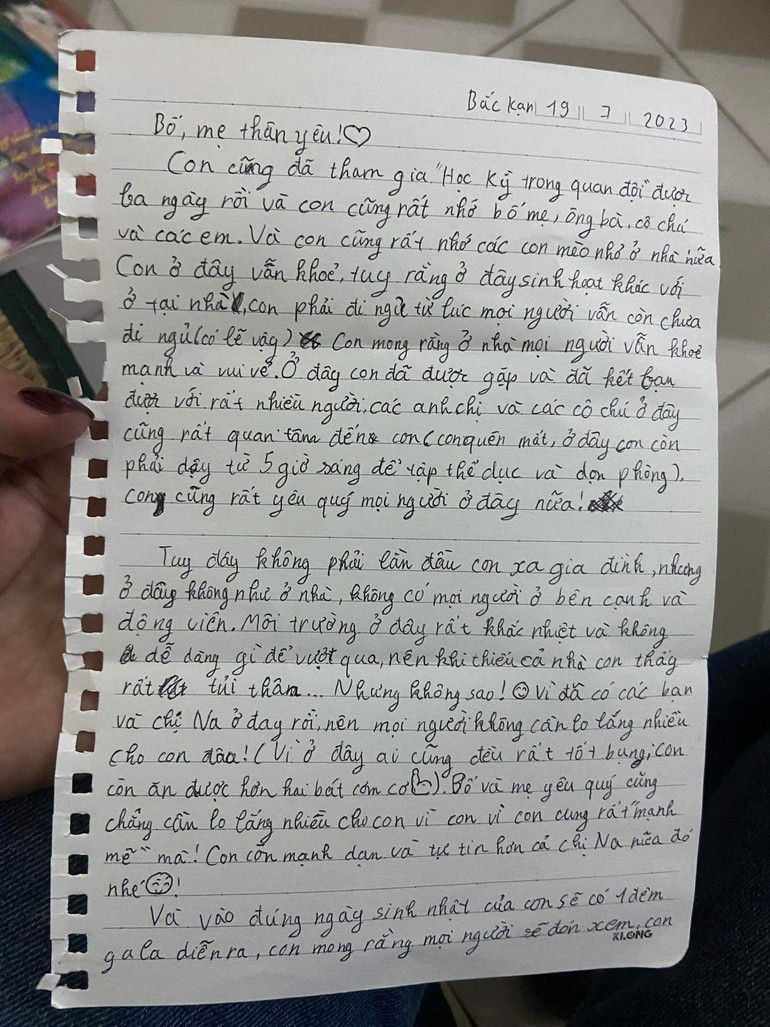 Bắc Kạn 19 7 2023
Bố, mẹ thân yêu!♡
Con cũng đã tham gia "Học Kỳ trong quân đội" được
ba ngày rồi và con cũng rất nhớ bố mẹ, ông bà, cô chú
và các em. Và con cũng rất nhớ các con mèo nhỏ ở nhà nữa
Con ở đây vẫn khoẻ, tuy rằng ở đây sinh hoạt khác với
ở tại nhà, con phải đi ngủ từ lúc mọi người vẫn còn chưa
đi ngủ (có lẽ vậy) Con mong rằng ở nhà mọi người vẫn khoẻ
mạnh và vui vẻ. Ở đây con đã được gặp và đã kết bạn
được với rất nhiều người, các anh chị và các cô chú ở đây
cũng rất quan tâm đến con (con quên mất, ở đây con còn
phải dậy từ 5 giờ sáng để tập thể dục và dọn phòng).
Con cũng rất yêu quý mọi người ở đây nữa!
Tuy đây không phải lần đầu con xa gia đình, nhưng
ở đây không như ở nhà, không có mọi người ở bên cạnh và
động viên. Môi trường ở đây rất khắc nhiệt và không
dễ dàng gì để vượt qua, nên khi thiếu cả nhà con thấy
rất tủi thân... Nhưng không sao! ☺ Vì đã có các bạn
và chị Na ở đay rồi, nên mọi người không cần lo lắng nhiều
cho con đâu! (Vì ở đây ai cũng đều rất tốt bụng, con
còn ăn được hơn hai bát cơm cơ). Bố và mẹ yêu quý cũng
chẳng cần lo lắng nhiều cho con vì con vì con cung rất "mạnh
mẽ" mà! Con còn mạnh dạn và tự tin hơn cả chị Na nữa đó
nhé ☺!
Và vào đúng ngày sinh nhật của con sẽ có 1 đêm
gala diễn ra, con mong rằng mọi người sẽ đón xem, con
KLONG